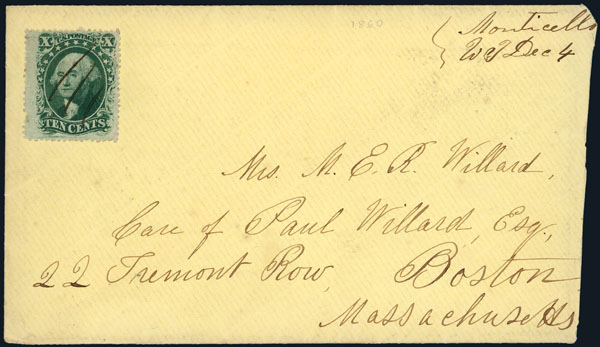 1860
Monticello
W T Dec 4
X U.S. POSTAGE X
TEN CENTS
Mrs. M. E. R. Willard,
Care of Paul Willard, Esq.,
22 Tremont Row, Boston
Massachusetts